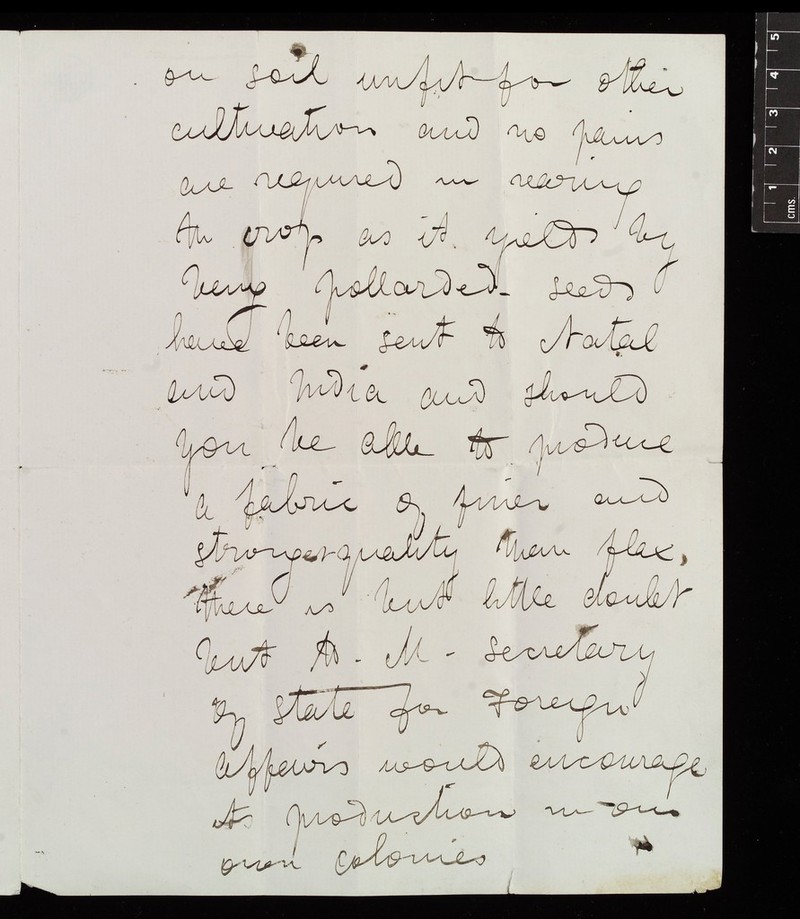 on soil unfit for other
cultivation and no pains
are required in rearing
the crop as it yields by
being pollarded - seeds
have been sent to Natal
and India and should
you be able to produce
a fabric of finer and
stronger quality than flax,
there is but little doubt
but H. M - secretary
of state for Foreign
affairs would encourage
its production in our
own colonies
cms. 1 2 3 4 5